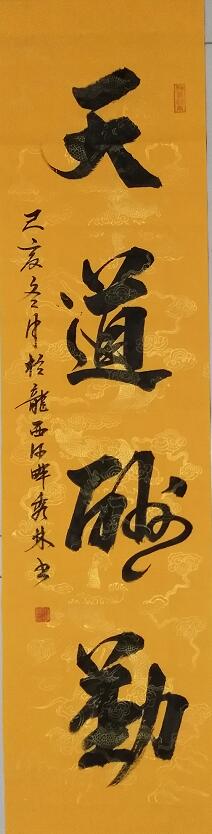 天道酬勤
己亥冬於龍西河畔秀林书